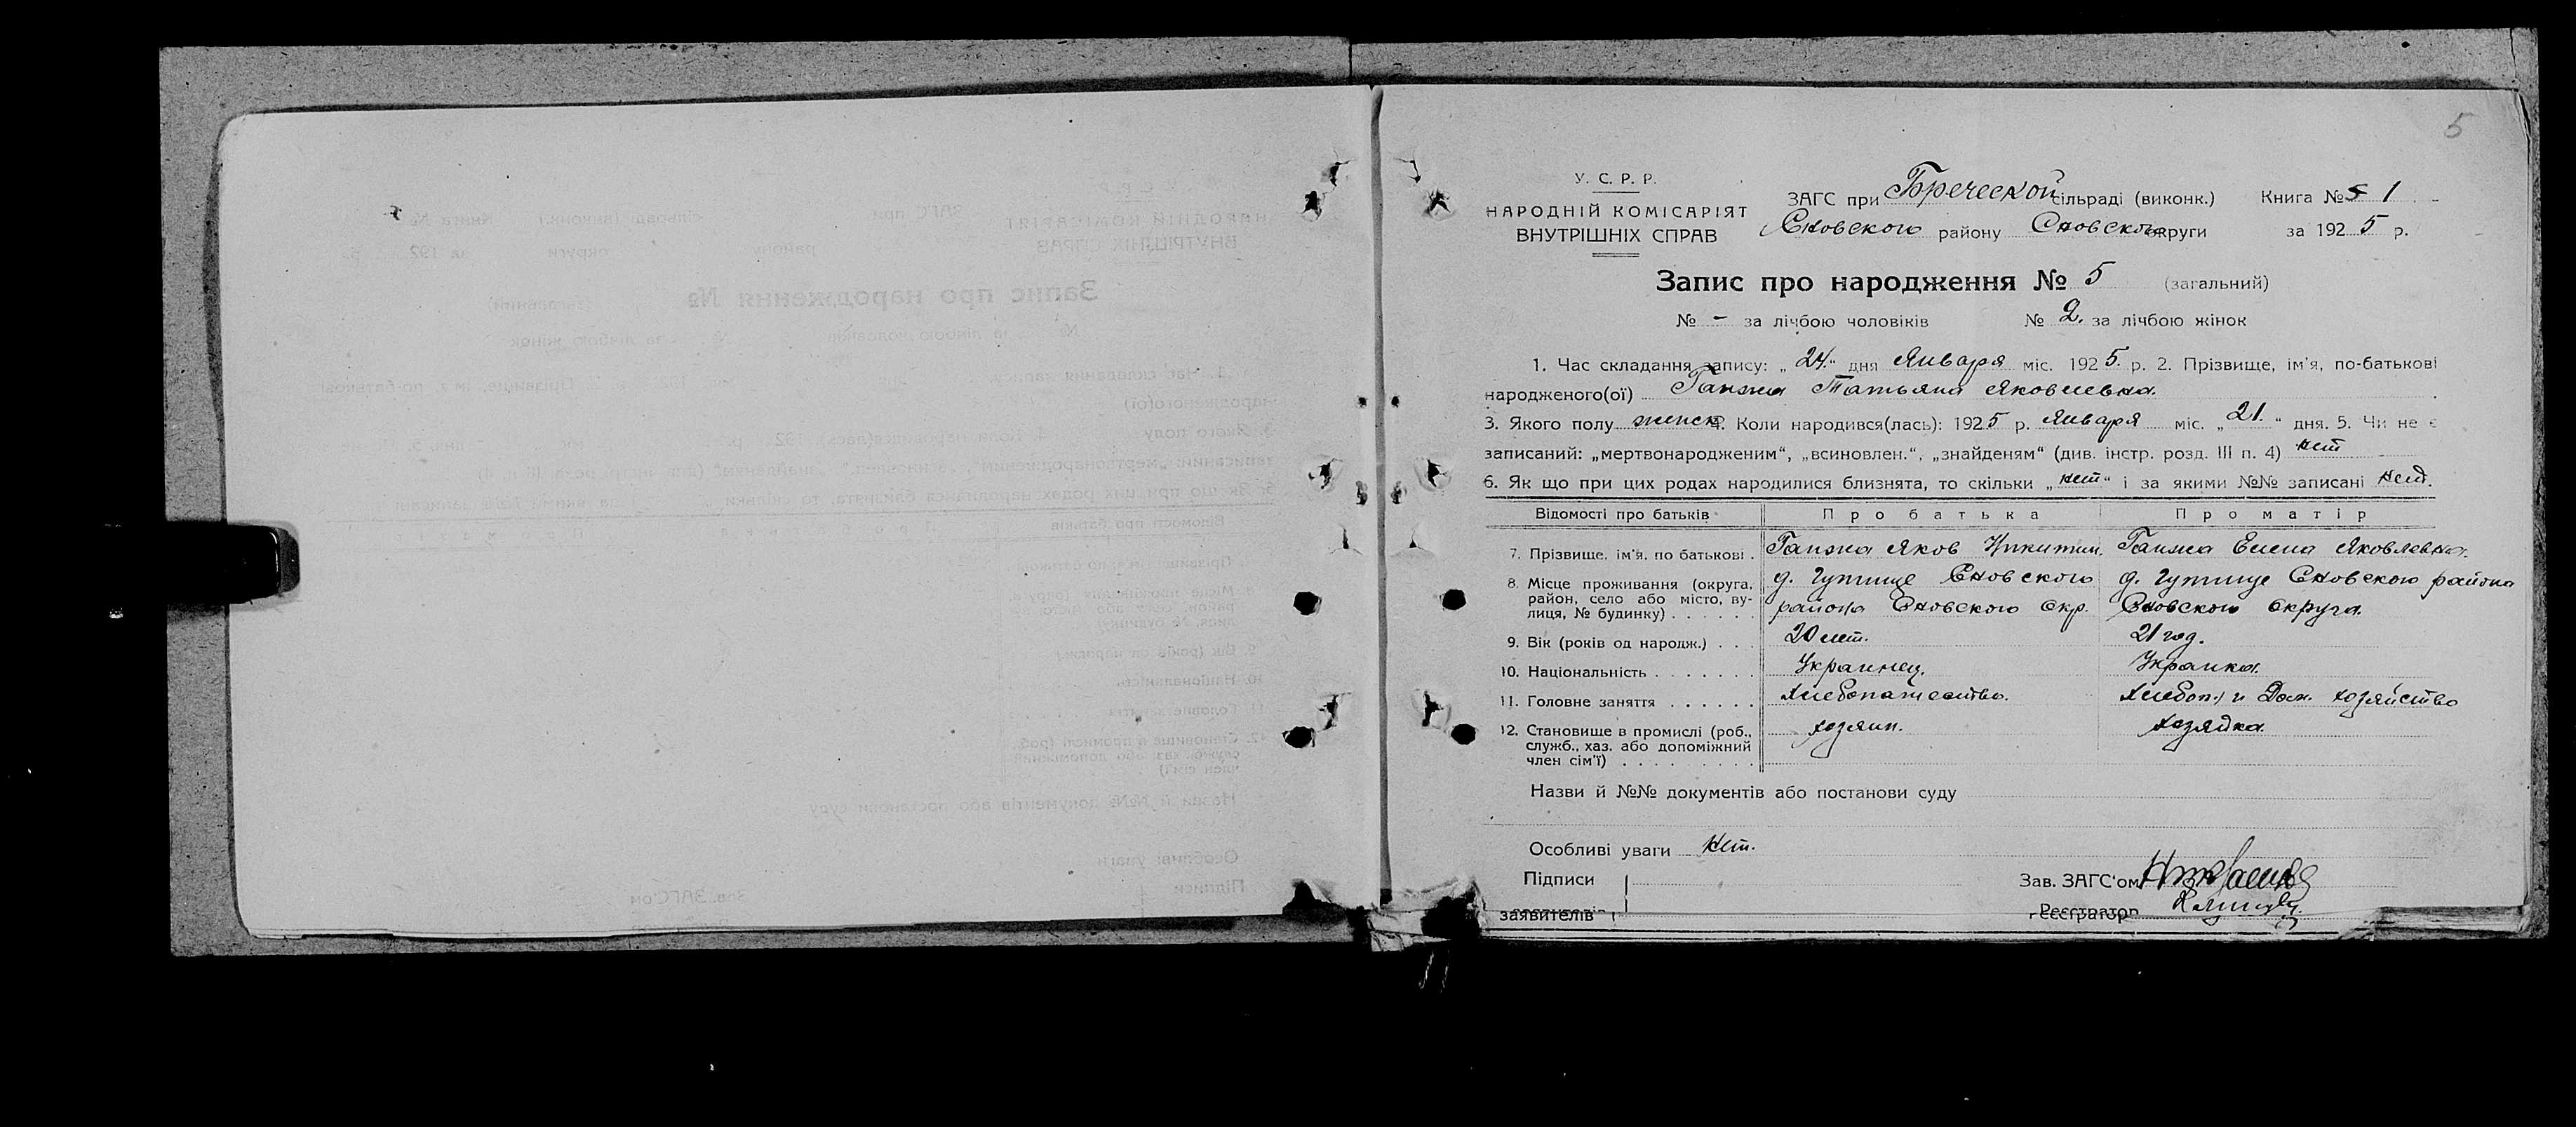 5
У. С. Р. Р.
НАРОДНІЙ КОМІСАРІЯТ
ВНУТРІШНІХ СПРАВ
ЗАГС при Бреческой сільраді (виконк.) Книга № 1
Сновского району Сновского округи за 1925 р.
Запис про народження № 5 (загальний)
№ - за лічбою чоловіків № 2. за лічбою жінок
1. Час складання запису: „24.“ дня Января міс. 1925. р. 2. Прізвище, ім'я, по-батькові
народженого(ої) Ганжа Татьяна Яковлевна.
3. Якого полу женск. 4. Коли народився(лась): 1925 р. Января міс. „21.“ дня. 5. Чи не є
записаний: „мертвонародженим“, „всиновлен.“, „знайденям“ (див. інстр. розд. III п. 4) нет
6. Як що при цих родах народилися близнята, то скільки „нет“ і за якими №№ записані нет.
Відомості про батьків Про батька Про матір
7. Прізвище, ім'я, по батькові . Ганжа Яков Никитич. Ганжа Елена Яковлевна.
8. Місце проживання (округа, район, село або місто, вулиця, № будинку) . . . . . . д. Гутище Сновского района Сновского окр. д. Гутище Сновского района Сновского округа.
9. Вік (років од народж.) . . . 20 лет. 21 год.
10. Національність . . . . . . . Украинец. Украинка.
11. Головне заняття . . . . . . Хлебопашество. Хлебоп. и Дом. хозяйство
12. Становище в промислі (роб., служб., хаз. або допоміжний член сім'ї) . . . . . . . . . хозяин. хозяйка.
Назви й №№ документів або постанови суду
Особливі уваги нет.
Підписи
заявителів
Зав. ЗАГС'ом
Реєстратор